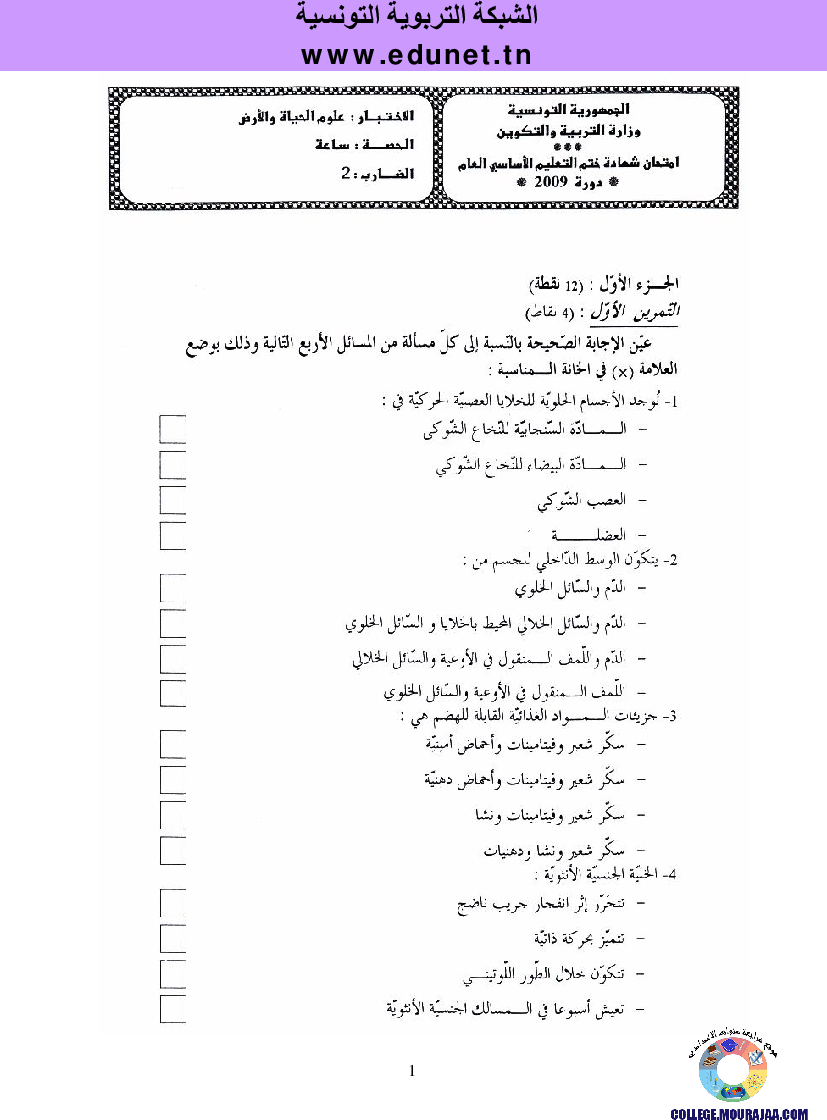 الشبكة التربوية التونسية
www.edunet.tn
الجمهورية التونسية
وزارة التربية والتكوين
***
امتحان شهادة ختم التعليم الأساسي العام
* دورة 2009 *
الاختبـار : علوم الحياة والأرض
الحصـة : ساعة
الضـارب : 2
الجـزء الأوّل : (12 نقطة)
التمرين الأوّل : (4 نقاط)
عيّن الإجابة الصّحيحة بالنّسبة إلى كلّ مسألة من المسائل الأربع التالية وذلك بوضع
العلامة (x) في الخانة الـمناسبة :
1- تُوجد الأجسام الخلويّة للخلايا العصبيّة الحركيّة في :
- الـمـادّة السّنجابيّة للنّخاع الشّوكي
- الـمـادّة البيضاء للنّخاع الشّوكي
- العصب الشّوكي
- العضلـــة
2- يتكوّن الوسط الدّاخلي للجسم من :
- الدّم والسّائل الخلوي
- الدّم والسّائل الخلالي المحيط بالخلايا و السّائل الخلوي
- الدّم واللّمف الـمنقول في الأوعية والسّائل الخلالي
- اللّمف الـمنقول في الأوعية والسّائل الخلوي
3- جزيئات الـمـواد الغذائيّة القابلة للهضم هي :
- سكّر شعير وفيتامينات وأحماض أمينيّة
- سكّر شعير وفيتامينات وأحماض دهنيّة
- سكّر شعير وفيتامينات ونشا
- سكّر شعير ونشا ودهنيات
4- الخليّة الجنسيّة الأنثويّة :
- تتحرّر إثر انفجار جريب ناضج
- تتميّز بحركة ذاتيّة
- تتكوّن خلال الطور اللّوتينـي
- تعيش أسبوعا في الـمسالك الجنسيّة الأنثويّة
1
موقع مراجعة منهاج الإعدادية
COLLEGE.MOURAJAA.COM